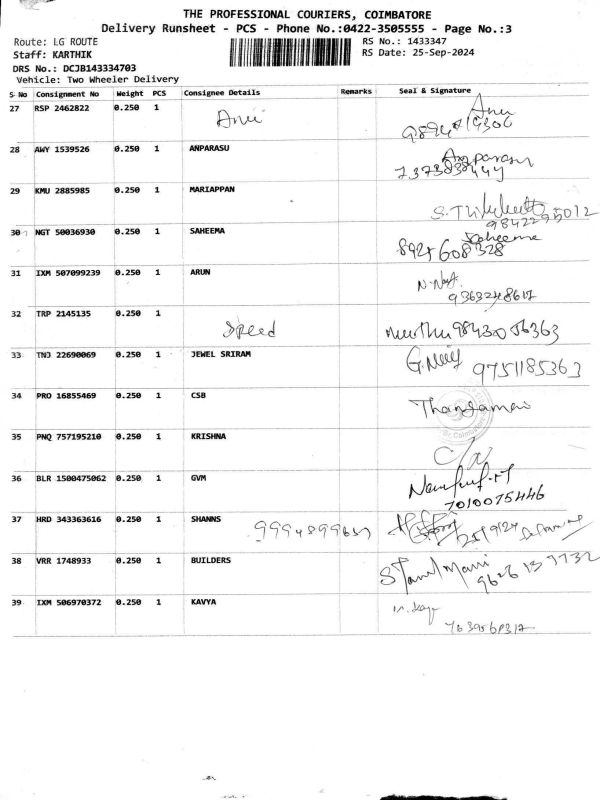 THE PROFESSIONAL COURIERS, COIMBATORE
Delivery Runsheet - PCS - Phone No.:0422-3505555 - Page No.:3
Route: LG ROUTE
RS No.: 1433347
Staff: KARTHIK
RS Date: 25-Sep-2024
DRS No.: DCJB143334703
Vehicle: Two Wheeler Delivery
S No Consignment No Weight PCS Consignee Details Remarks Seal & Signature
27 RSP 2462822 0.250 1 Anu Anu
28 AWY 1539526 0.250 1 ANPARASU Anparasu
7373838444
29 KMU 2885985 0.250 1 MARIAPPAN
9842295012
30 NGT 50036930 0.250 1 SAHEEMA Saheema
8925608328
31 IXM 507099239 0.250 1 ARUN
9363248617
32 TRP 2145135 0.250 1
Speed Muthu 9843056363
33 TNJ 22690069 0.250 1 JEWEL SRIRAM
9751185363
34 PRO 16855469 0.250 1 CSB
Thangamani
35 PNQ 757195210 0.250 1 KRISHNA
36 BLR 1500475062 0.250 1 GVM
7010075446
37 HRD 343363616 0.250 1 SHANNS
25/9/24
38 VRR 1748933 0.250 1 BUILDERS
S Tamil Mani
9626139732
39 IXM 506970372 0.250 1 KAVYA